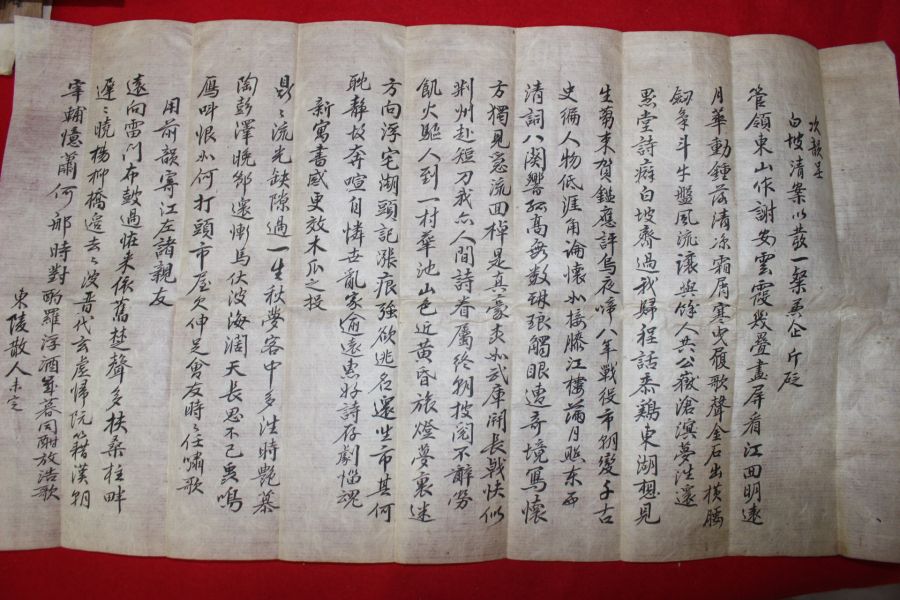 次韻呈
白坡清案以發一粲再企斤碇
管領東山作謝安雲霞幾疊畫屏看江回明遠
月華動鍾落清凉霜屑寒曳履歌聲金石出橫腰
劒氣斗牛盤風流讓與餘人共公嶽滄溟夢往還
思堂詩癖白坡齊過我婦程話黍鷄東湖想見
生蒭束賀鑑應評烏夜啼八年戰役市朝變千古
史編人物低涯角論懷如接膝江樓蘭月照东西
清詞八関響孤高無數琳琅觸眼遭奇境寫懷
方獨見急流回棹是真豪炎如武庫開長戟快似
荆州赴短刀我亦人間詩眷屬終朝披閱不辭勞
飢火驅人到一村華池山色近黃昏旅燈夢裏迷
方向浮宅湖頭記漲痕強欲逃名還坐市其何
耽靜故奔喧自憐世亂家逾遠惠好詩存劇惱魂
新寓書感更效木瓜之投
流光缺隙過一生秋夢客中多注時艶慕
陶彭澤晚節還慚馬伏波海濶天長思不已魚鳴
鴈呌恨如何打頭市屋欠伸足會友時時任嘯歌
用前韻寄江左諸親友
遠向雷门布鼓過恠来依舊楚聲多扶桑枉畔
遲遲曉楊柳橋邉去去波晋代玄虛帰阮籍漢朝
宰輔憶蕭何那時對酌羅浮酒歲暮同酣放浩歌
東陵散人未定